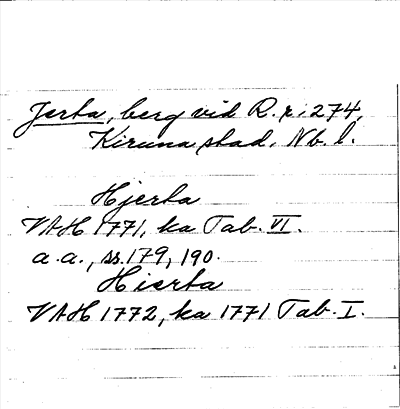 Jerta, berg vid R.r. 274,
Kiruna stad, Nb. l.
Hjerta
VAH 1771, ka Tab. VI.
a.a., ss. 179, 190.
Hierta
VAH 1772, ka 1771 Tab. I.